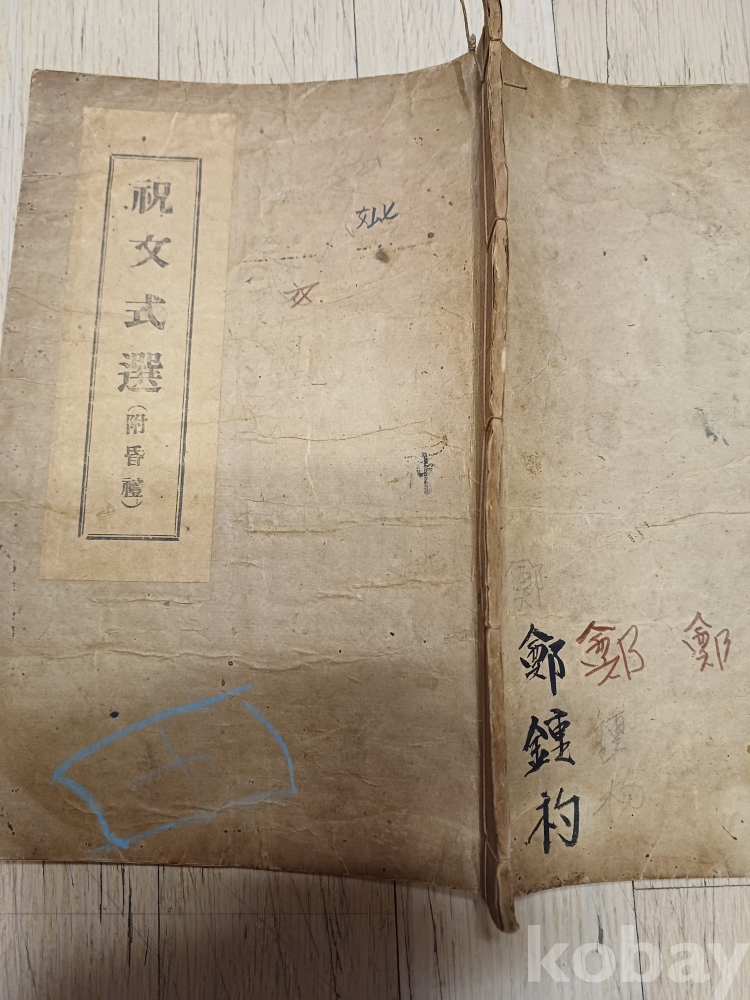 祝文式選
(附昏禮)
文
鄭
鄭鍾礿
鄭
鄭
kobay